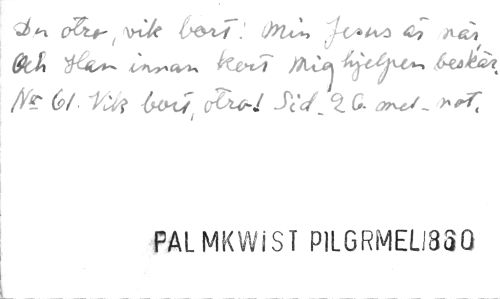 Du otro, vik bort! Min Jesus är när,
Och Han innan kort mig hjelpen beskär.
No 61. Vik bort, otro! Sid. 26 mel. not.
PALMKWIST PILGRMEL1860